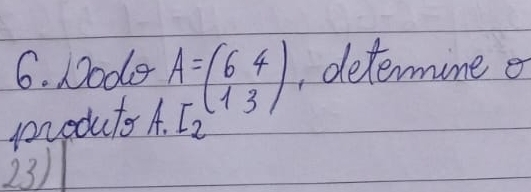 6. Dado A = (6 4
1 3), determine o
produto A. I2
23)